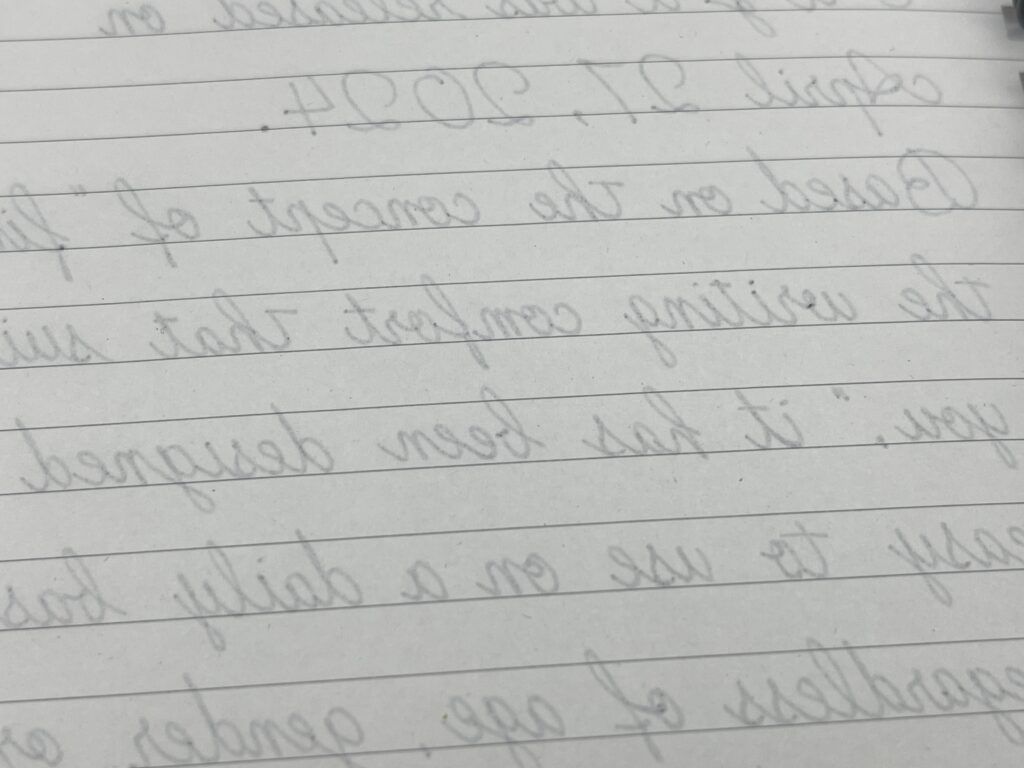 was released on
April 27, 2024.
Based on the concept of "fin
the writing comfort that sui
you," it has been designed
easy to use on a daily bas
egardless of age, gender, or